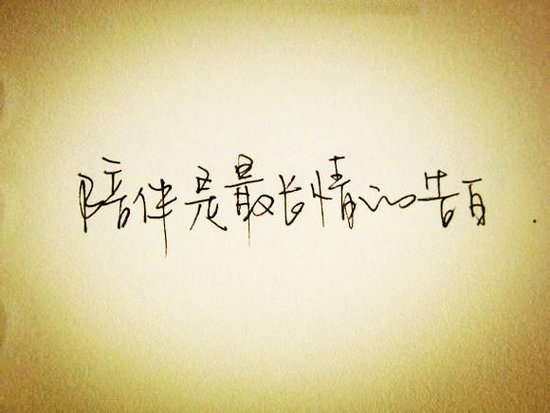 陪伴是最长情的告白.